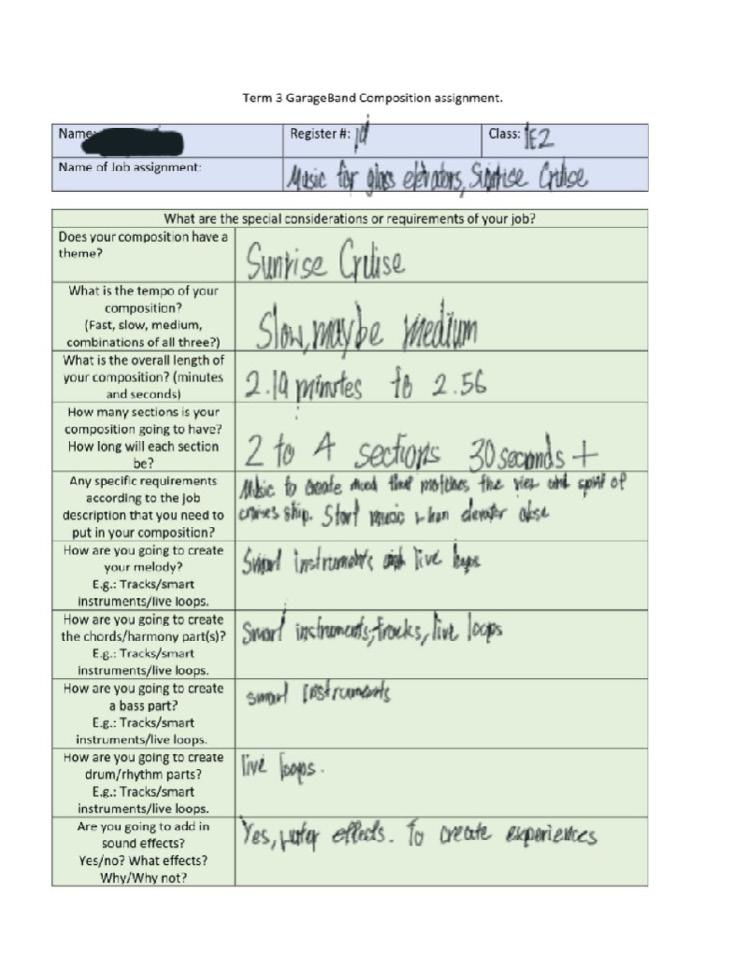 Term 3 GarageBand Composition assignment.
Name:
Register #:
Class: 1E2
Name of Job assignment:
Music for glass elevators, Sunrise Cruise
What are the special considerations or requirements of your job?
Does your composition have a
theme?
Sunrise Cruise
What is the tempo of your
composition?
(Fast, slow, medium,
combinations of all three?)
Slow, maybe medium
What is the overall length of
your composition? (minutes
and seconds)
2.19 minutes to 2.56
How many sections is your
composition going to have?
How long will each section
be?
2 to 4 sections 30 seconds +
Any specific requirements
according to the job
description that you need to
put in your composition?
Music to create mood that matches the view and spirit of
cruises ship. Start music when elevator
How are you going to create
your melody?
E.g.: Tracks/smart
instruments/live loops.
Smart instruments live loops
How are you going to create
the chords/harmony part(s)?
E.g.: Tracks/smart
instruments/live loops.
Smart instruments, tracks, live loops
How are you going to create
a bass part?
E.g.: Tracks/smart
instruments/live loops.
smart instruments
How are you going to create
drum/rhythm parts?
E.g.: Tracks/smart
instruments/live loops.
live loops.
Are you going to add in
sound effects?
Yes/no? What effects?
Why/Why not?
Yes, water effects. To create experiences